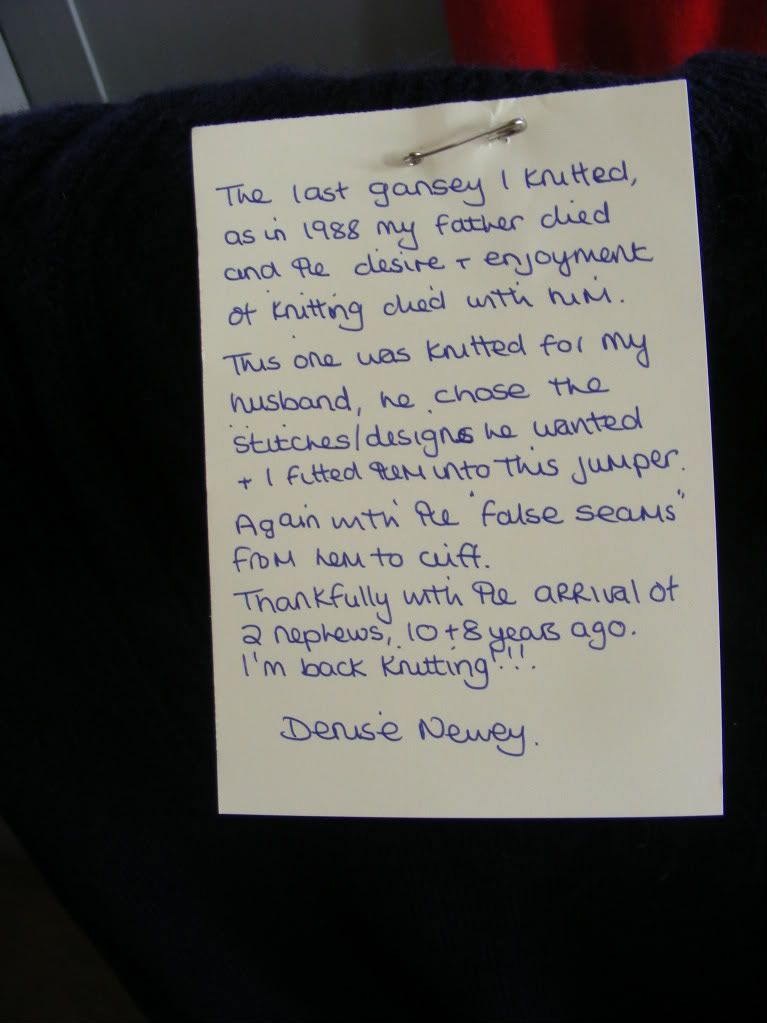 The last gansey I knitted,
as in 1988 my father died
and the desire + enjoyment
of knitting died with him.
This one was knitted for my
husband, he chose the
stitches/designs he wanted
+ I fitted them into this jumper.
Again with the "false seams"
from hem to cuff.
Thankfully with the arrival of
2 nephews, 10 + 8 years ago.
I'm back knitting!!!.
Denise Newey.